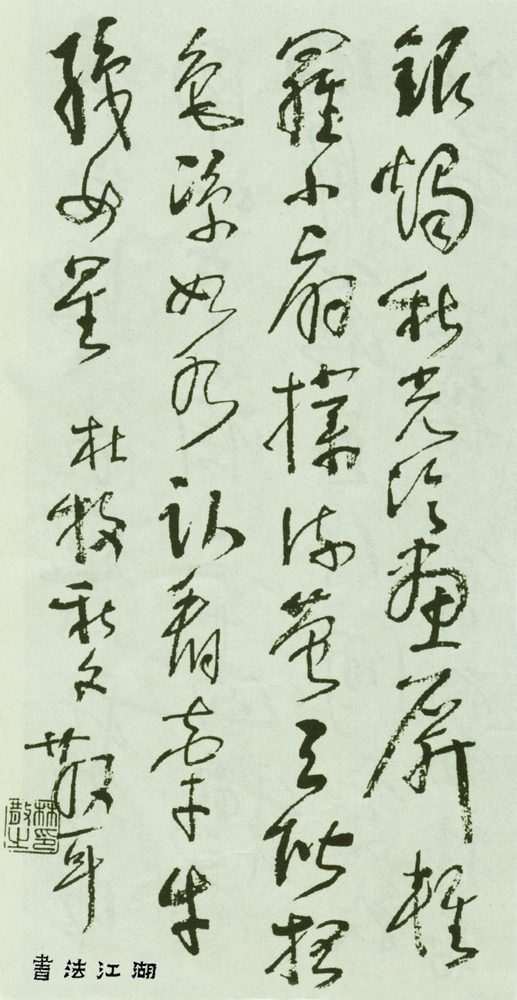 銀燭秋光冷畫屏輕
羅小扇撲流螢天階夜
色涼如水臥看牽牛
織女星 杜牧秋夕 散耳
林散之印
書法江湖